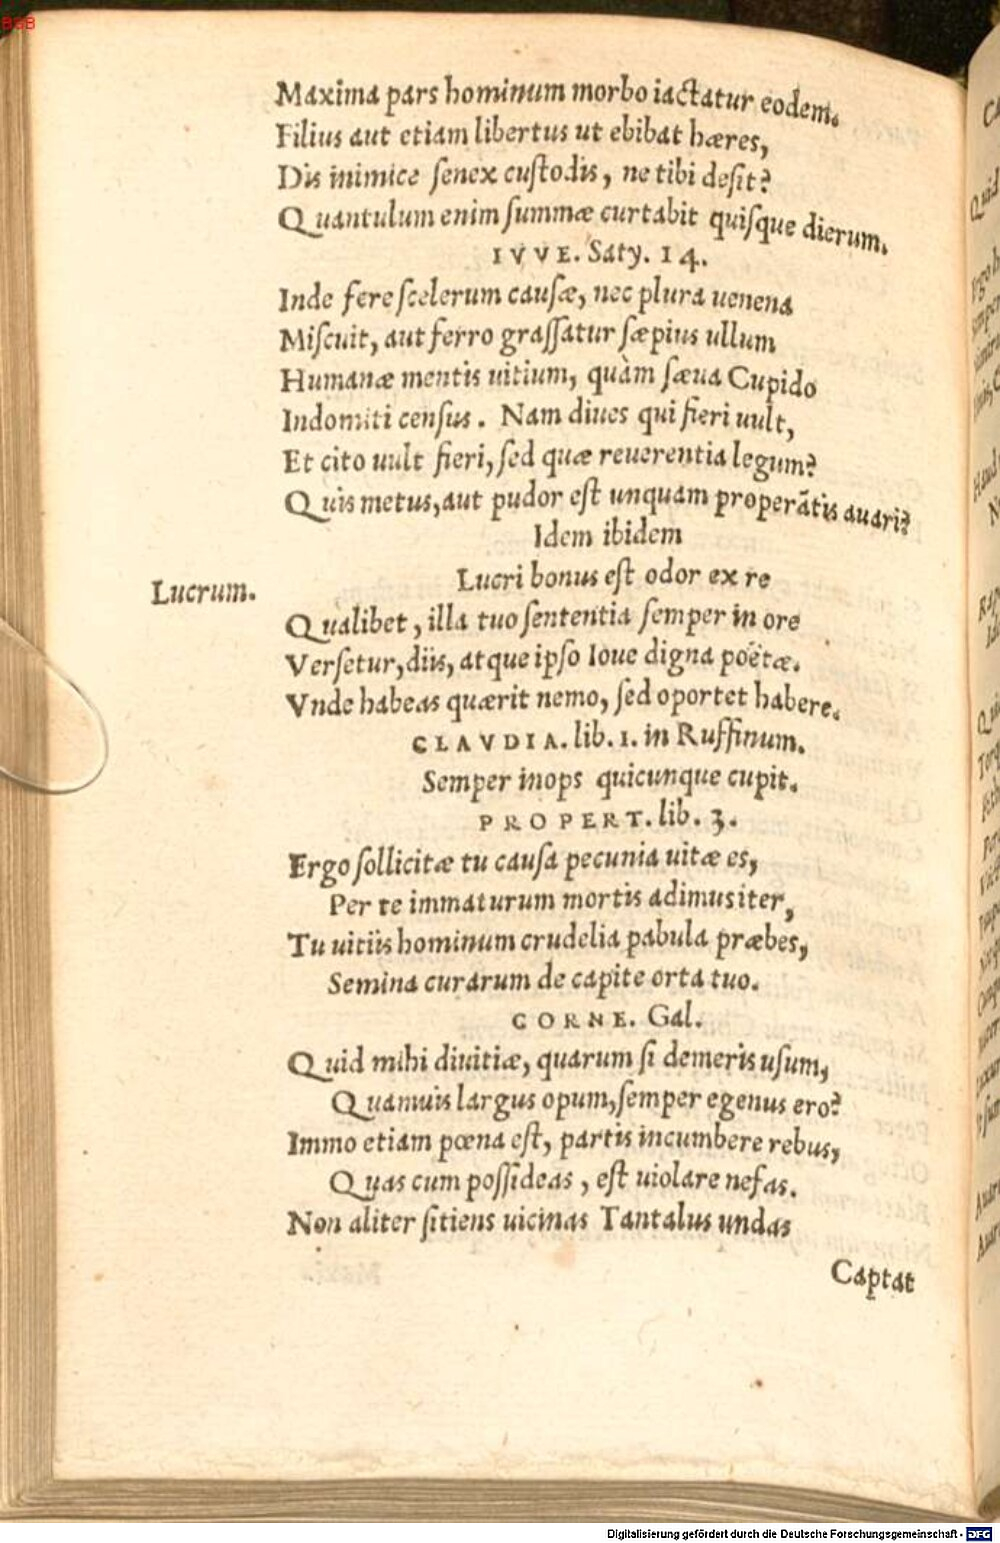 BSB
Maxima pars hominum morbo iactatur eodem.
Filius aut etiam libertus ut ebibat hæres,
Dis inimice senex custodis, ne tibi desit?
Quantulum enim summæ curtabit quisque dierum.
IVVE. Saty. 14.
Inde fere scelerum causæ, nec plura uenena
Miscuit, aut ferro grassatur sæpius ullum
Humanæ mentis uitium, quàm sæua Cupido
Indomiti census. Nam diues qui fieri uult,
Et cito uult fieri, sed quæ reuerentia legum?
Quis metus, aut pudor est unquam properãtis auari?
Idem ibidem
Lucrum.
Lucri bonus est odor ex re
Qualibet, illa tuo sententia semper in ore
Versetur, diis, atque ipso Ioue digna poëtæ.
Vnde habeas quærit nemo, sed oportet habere.
CLAVDIA. lib. 1. in Ruffinum.
Semper inops quicunque cupit.
PROPERT. lib. 3.
Ergo sollicitæ tu causa pecunia uitæ es,
Per te immaturum mortis adimus iter,
Tu uitiis hominum crudelia pabula præbes,
Semina curarum de capite orta tuo.
CORNE. Gal.
Quid mihi diuitiæ, quarum si demeris usum,
Quamuis largus opum, semper egenus ero?
Immo etiam pœna est, partis incumbere rebus,
Quas cum possideas, est uiolare nefas.
Non aliter sitiens uicinas Tantalus undas
Captat
Digitalisierung gefördert durch die Deutsche Forschungsgemeinschaft - DFG